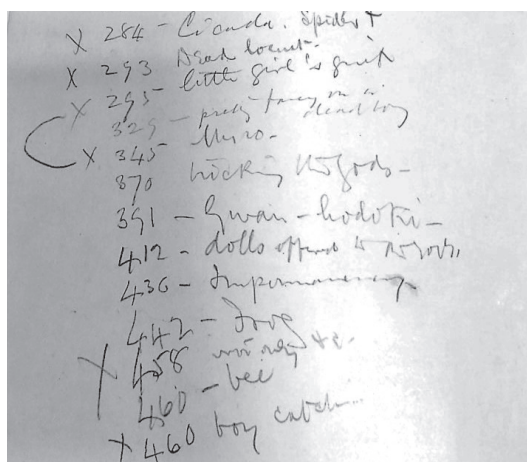 X 284 - Cicada. Spider +
X 293 Dead locust-
X 295 little girl's grief
329 - pretty fancy on a dead boy
X 345
370 the gods-
391 - Gwan-hodoki-
412 - dolls offered to
436 - Impermanency
442 - frog
X 458
460 - bee
X 460 boy catch...